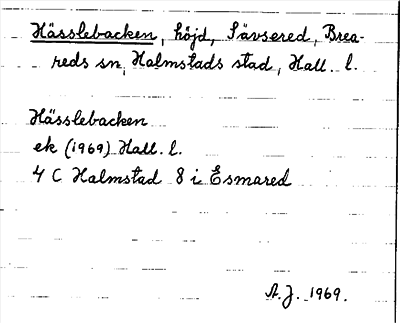 Hässlebacken, höjd, Sävsered, Brea-
reds sn, Halmstads stad, Hall. l.
Hässlebacken
ek (1969) Hall. l.
4 C Halmstad 8 i Esmared
A.J. 1969.